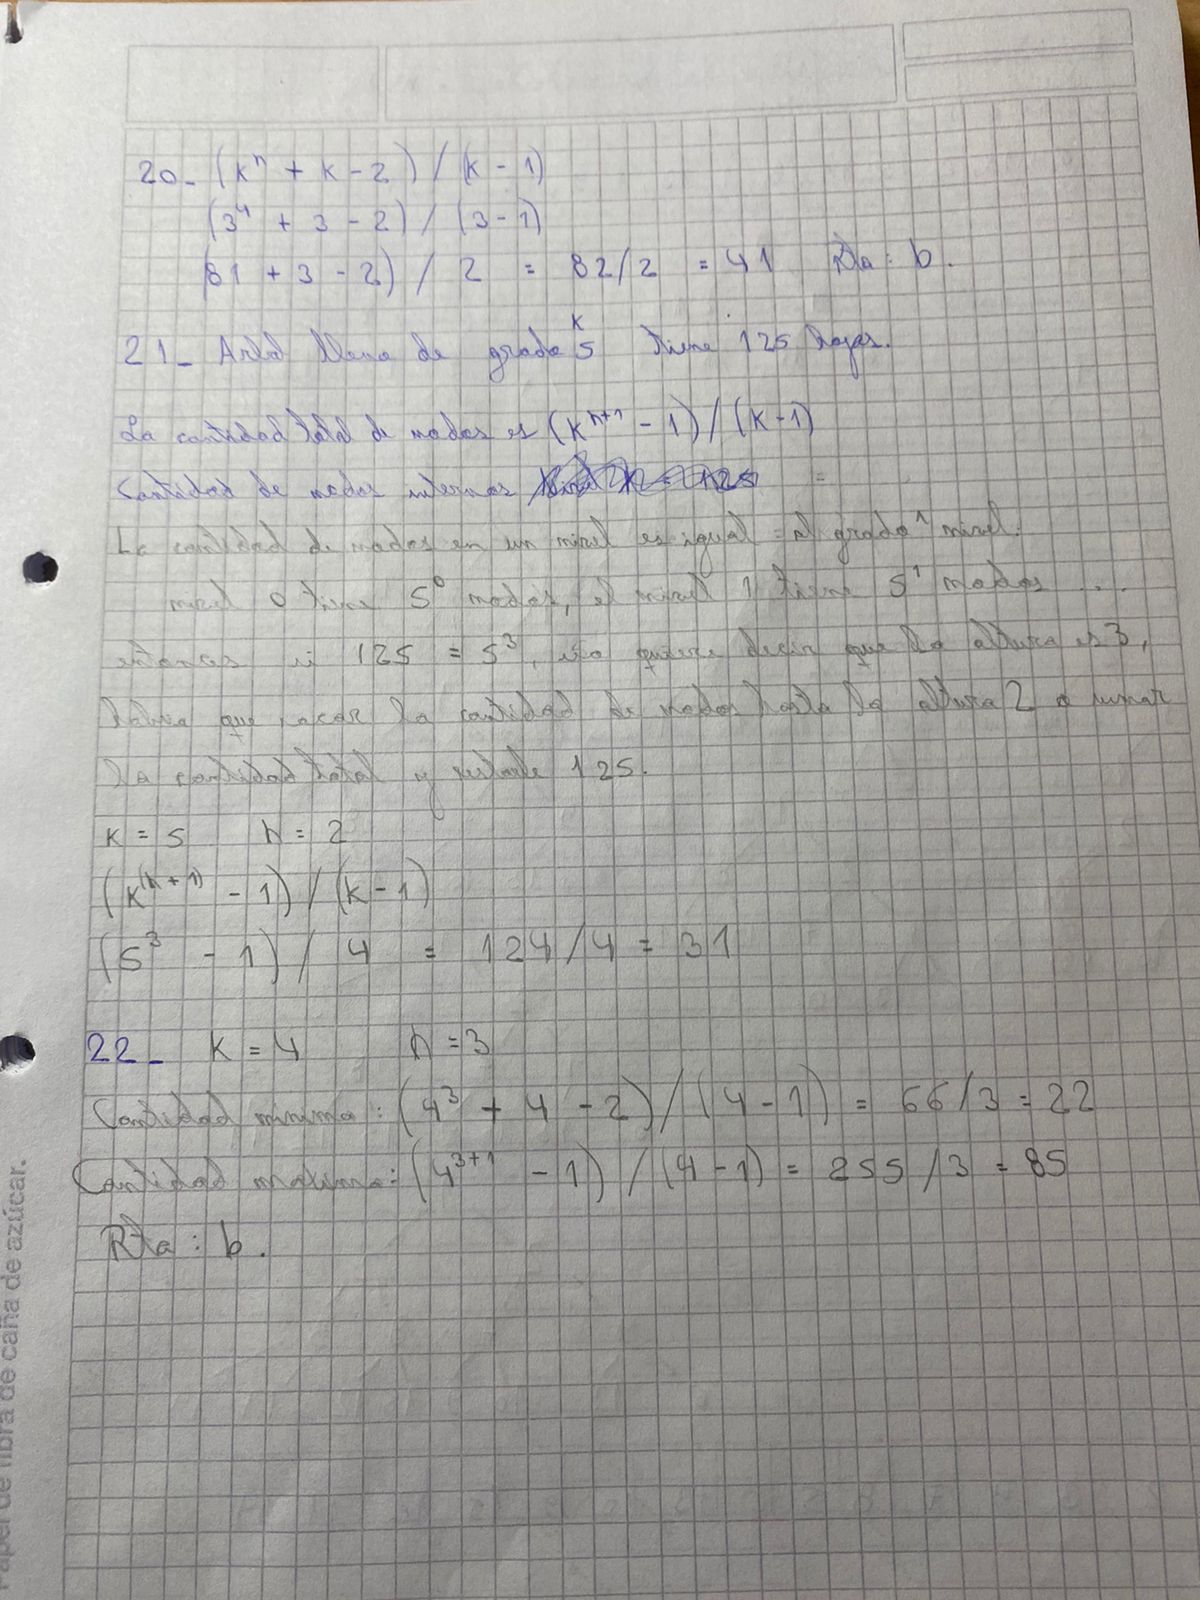 20- (k^h + k - 2) / (k - 1)
(3^4 + 3 - 2) / (3 - 1)
(81 + 3 - 2) / 2 = 82/2 = 41 Rta: b.
k
21- Arbol lleno de grado 5 tiene 125 hojas.
La cantidad total de nodos es (k^h+1 - 1) / (k - 1)
Cantidad de nodos internos =
La cantidad de nodos en un nivel es igual al grado^nivel.
nivel 0 tiene 5^0 nodos, el nivel 1 tiene 5^1 nodos ...
entonces si 125 = 5^3, eso quiere decir que la altura es 3,
habria que sacar la cantidad de nodos hasta la altura 2 o sumar
la cantidad total y restarle 125.
k = 5 h = 2
(k^(h+1) - 1) / (k - 1)
(5^3 - 1) / 4 = 124/4 = 31
22- k = 4 h = 3
Cantidad minima: (4^3 + 4 - 2) / (4 - 1) = 66/3 = 22
Cantidad maxima: (4^3+1 - 1) / (4 - 1) = 255/3 = 85
Rta: b.
Papel de fibra de caña de azúcar.